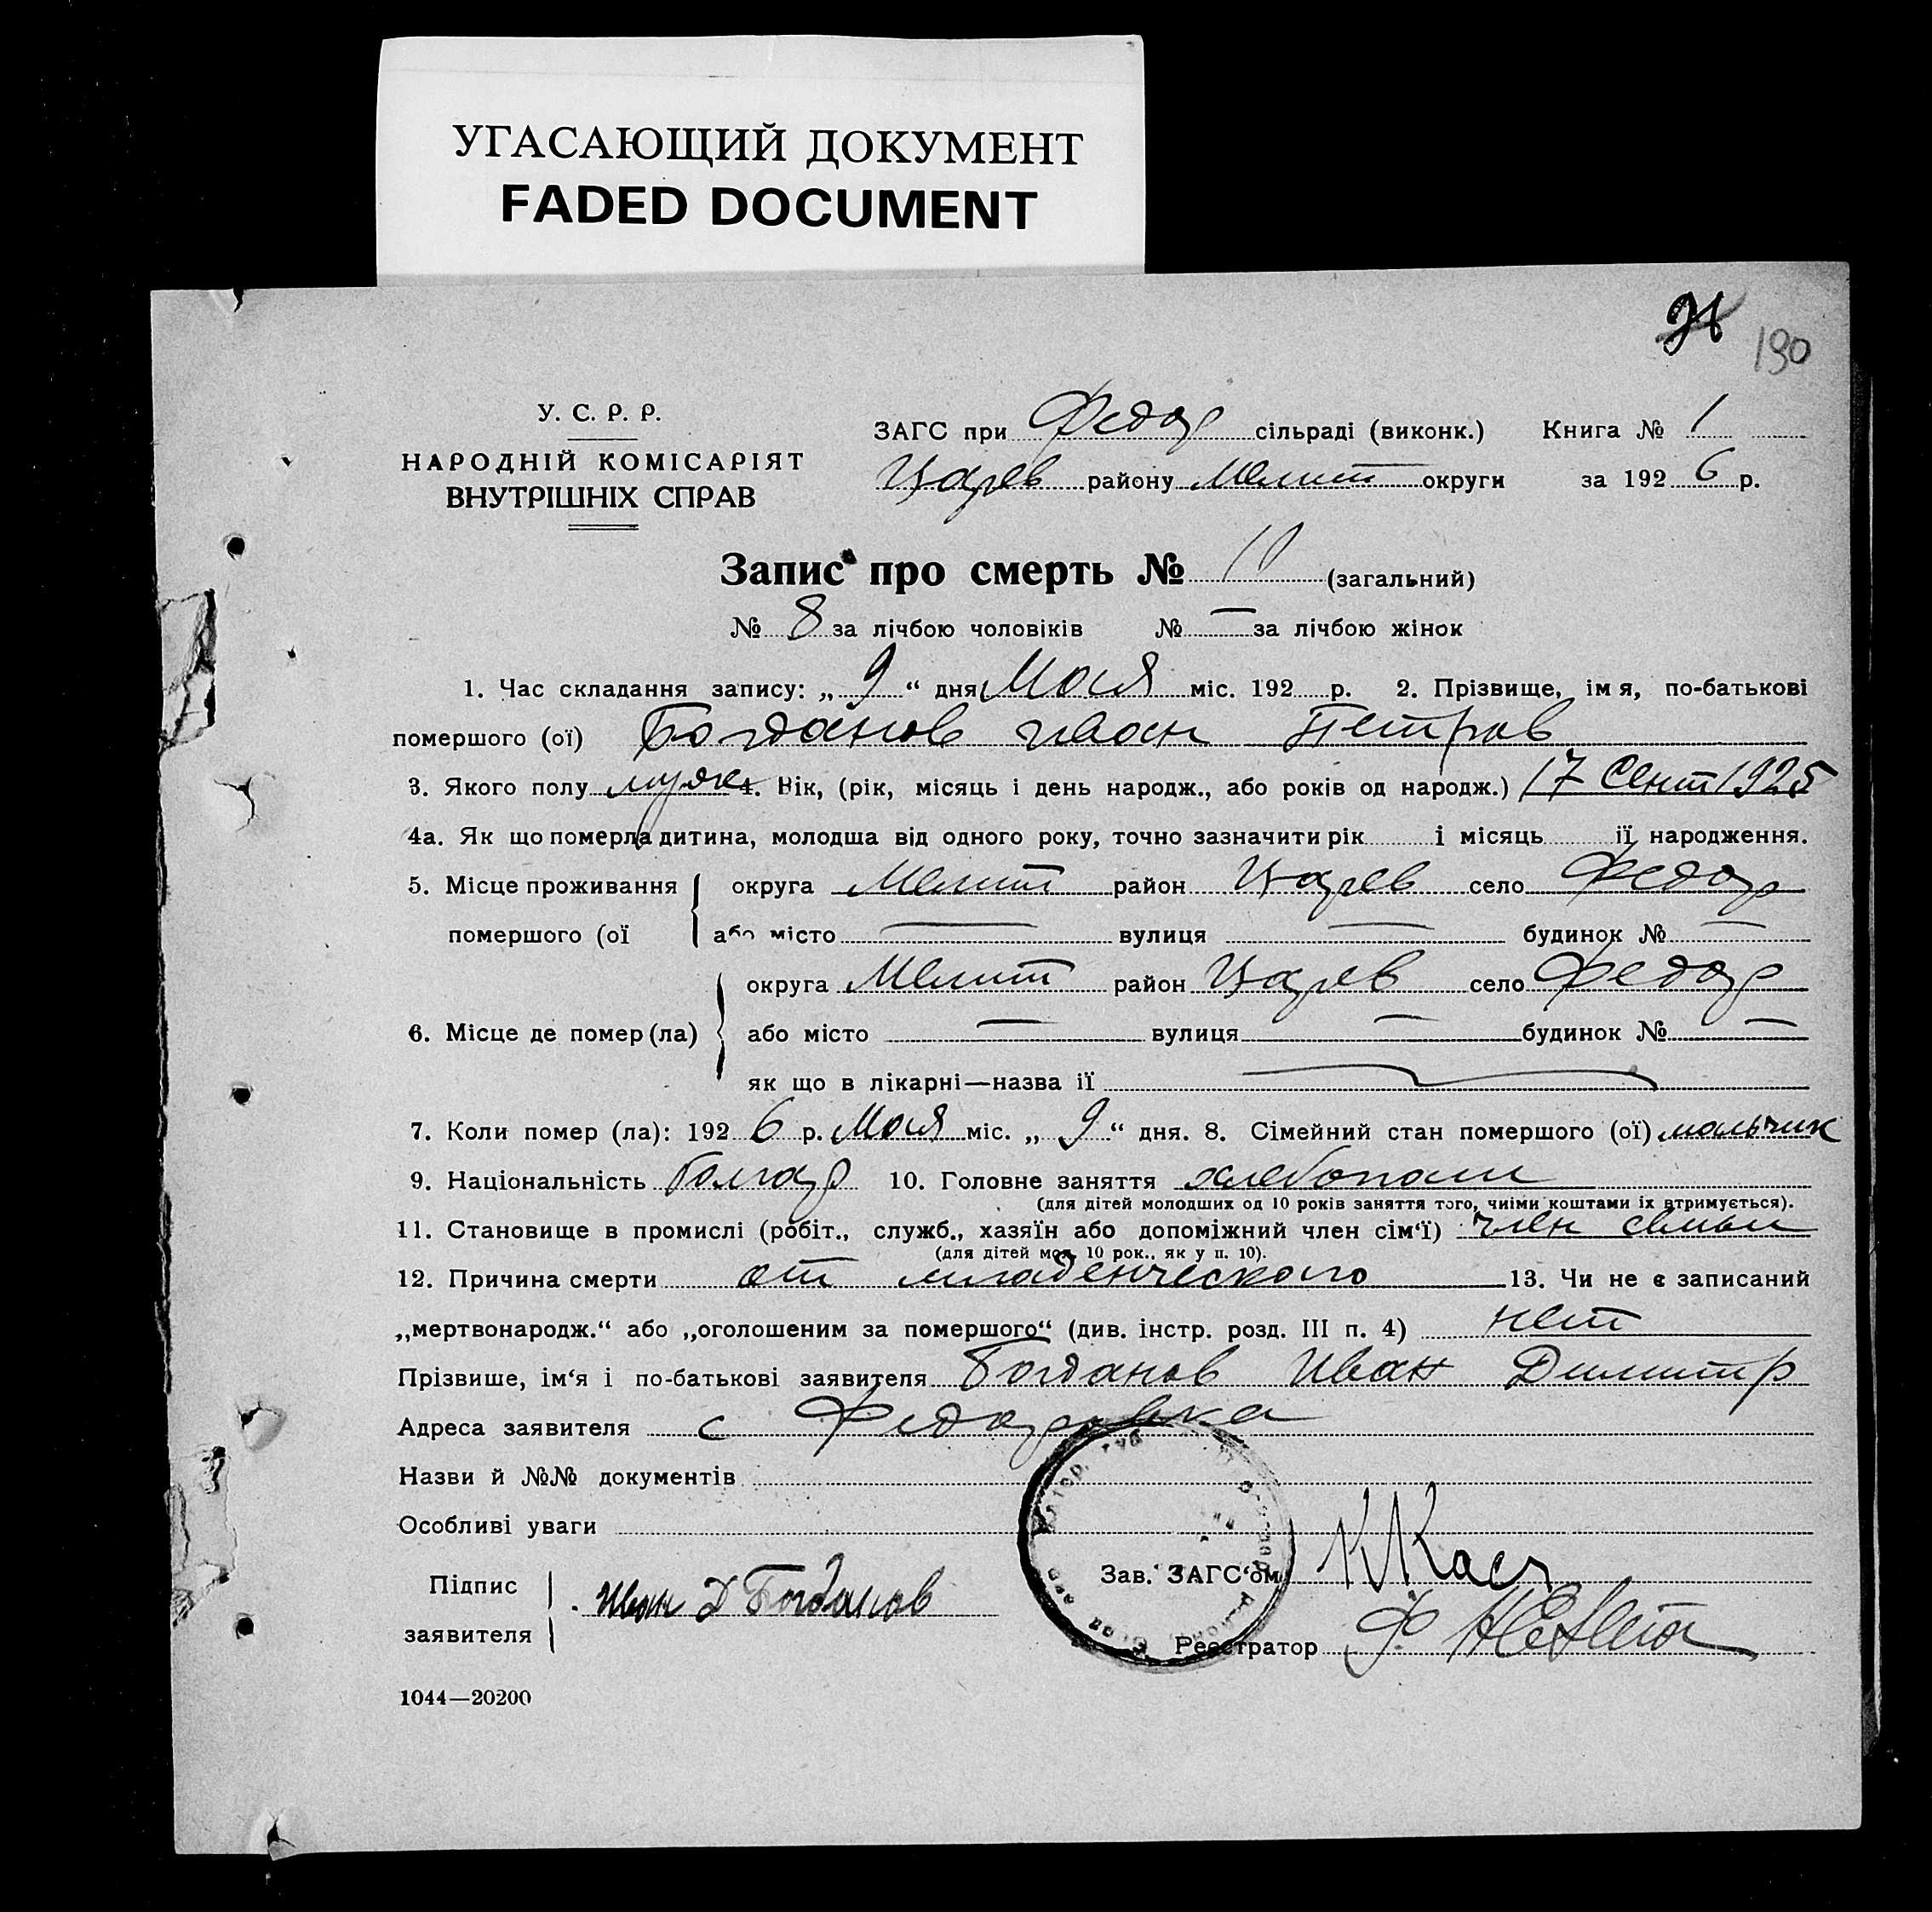 УГАСАЮЩИЙ ДОКУМЕНТ
FADED DOCUMENT
190
У. С. Р. Р.
НАРОДНІЙ КОМІСАРІЯТ
ВНУТРІШНІХ СПРАВ
ЗАГС при Федор сільраді (виконк.) Книга № 1
Царев району Мелит округи за 1926 р.
Запис про смерть № 10 (загальний)
№ 8 за лічбою чоловіків № — за лічбою жінок
1. Час складання запису: „ 9 “ дня Мая міс. 192 р. 2. Прізвище, імя, по-батькові
помершого (ої) Богданов Иван Петров
3. Якого полу муж 4. Вік, (рік, місяць і день народж., або років од народж.) 17 Сент 1925
4а. Як що померла дитина, молодша від одного року, точно зазначити рік і місяць її народження.
5. Місце проживання помершого (ої округа Мелит район Царев село Федор
або місто — вулиця — будинок № —
6. Місце де помер (ла) округа Мелит район Царев село Федор
або місто — вулиця — будинок № —
як що в лікарні—назва її
7. Коли помер (ла): 1926 р. Мая міс. „ 9 “ дня. 8. Сімейний стан помершого (ої) мальчик
9. Національність болгар 10. Головне заняття хлебопаш
(для дітей молодших од 10 років заняття того, чиїми коштами їх втримується).
11. Становище в промислі (робіт., служб., хазяїн або допоміжний член сім‘ї) член семьи
(для дітей мол. 10 рок., як у п. 10).
12. Причина смерти от младенческого 13. Чи не є записаний
„мертвонародж.“ або „оголошеним за помершого“ (див. інстр. розд. III п. 4) нет
Прізвише, ім‘я і по-батькові заявителя Богданов Иван Димитр
Адреса заявителя с Федоровка
Назви й №№ документів
Особливі уваги
Підпис заявителя Иван Д Богданов
Зав. ЗАГС‘ом
Реєстратор
1044—20200